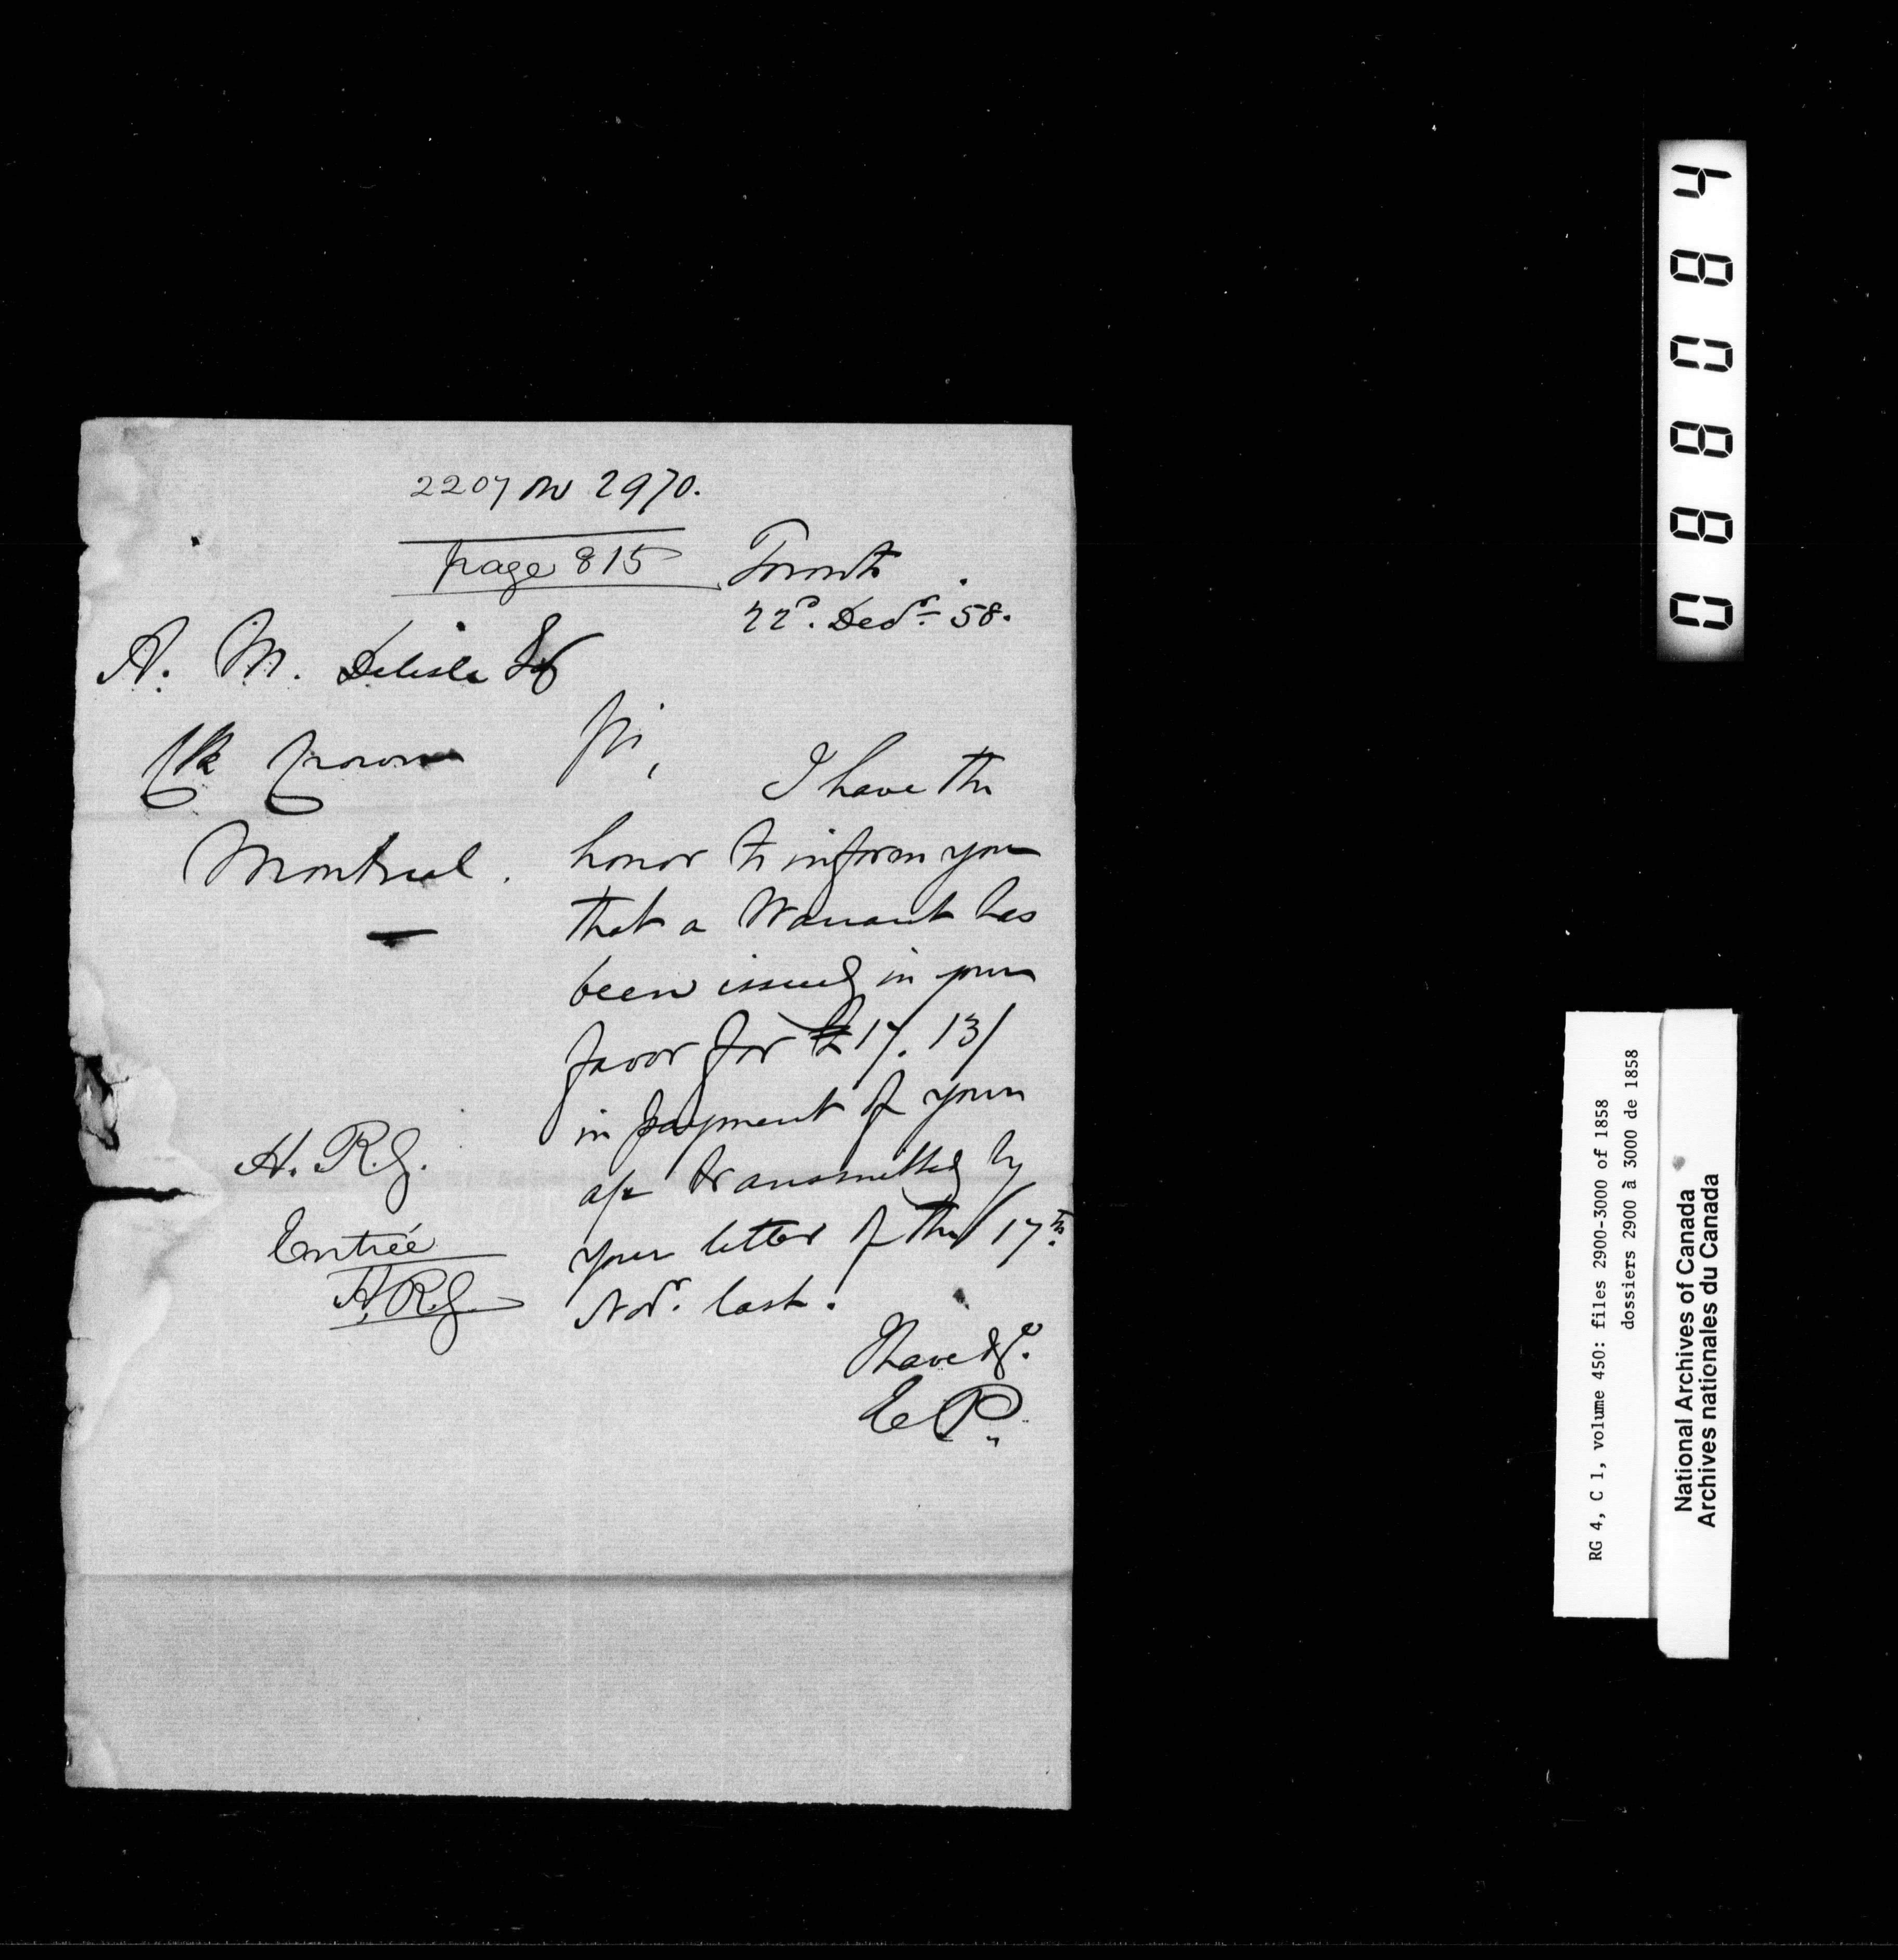 2207 on 2970.
page 815
Toronto
22d. Decr. 58.
A. M. Delisle Esq
Clk Crown
Montreal.
Sir,
I have the
honor to inform you
that a Warrant has
been issued in your
favor for £17. 13/
in payment of your
a/c transmitted by
your letter of the 17th.
Novr. last.
I have &c.
E P.
H. R. G.
Entrée
H. R. G.
088084
RG 4, C 1, volume 450: files 2900-3000 of 1858
dossiers 2900 à 3000 de 1858
National Archives of Canada
Archives nationales du Canada